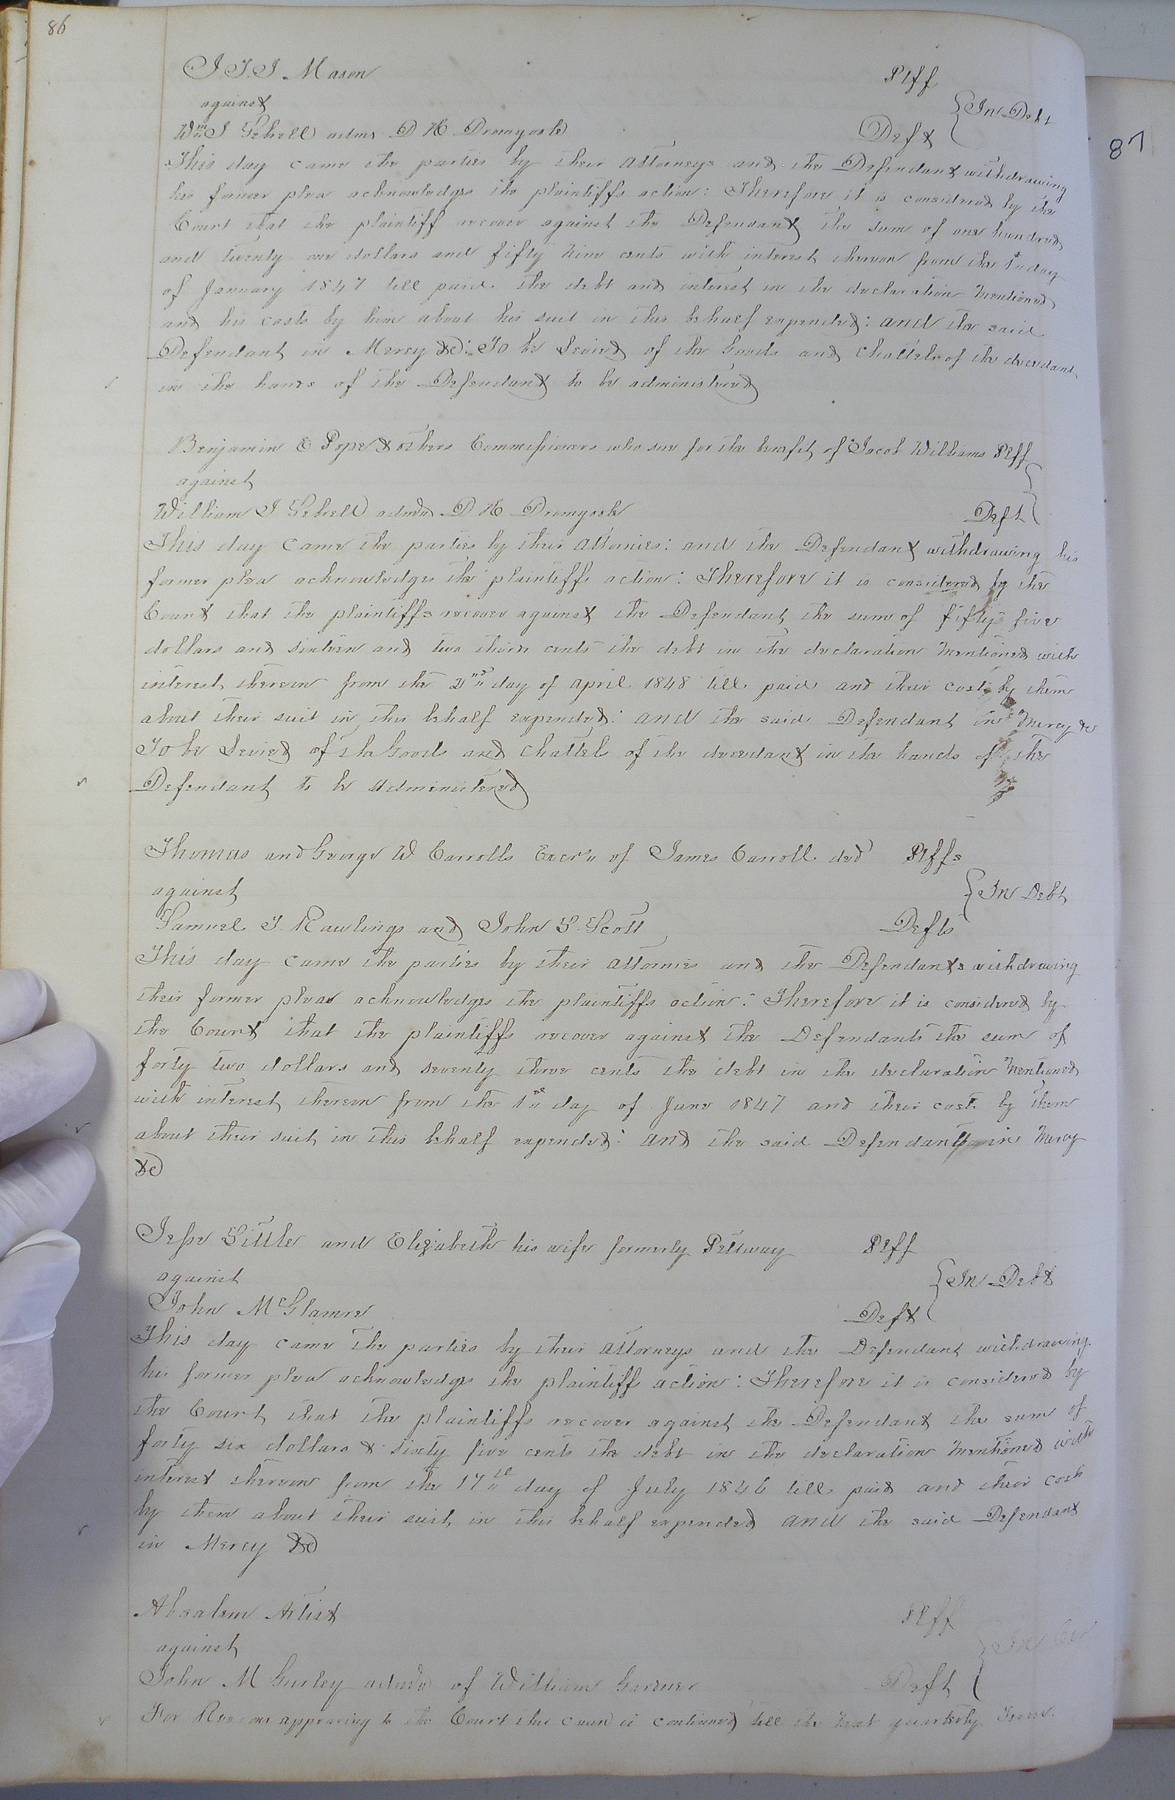 86
J. T. J. Mason Plff
against } In Debt
Wm J Sebrell admr D H Dromgoole Deft
This day came the parties by their attorneys and the Defendant withdrawing
his former plea acknowledges the plaintiffs action: Therefore it is considered by the
Court that the plaintiff recover against the Defendant the sum of one hundred
and twenty one dollars and fifty nine cents with interest thereon from the 1st day
of January 1847 till paid the debt and interest in the declaration mentioned
and his costs by him about his suit in this behalf expended: and the said
Defendant in Mercy &c: To be Levied of the Goods and Chattels of the decedant
in the hands of the Defendant to be administered
87
Benjamin E Pope & others Commissioners who sue for the benefit of Jacob Williams Plff
against
William J Sebrell admr D H Dromgoole Deft
This day came the parties by their attornies: and the Defendant withdrawing his
former plea acknowledges the plaintiffs action: Therefore it is considered by the
Court that the plaintiffs recover against the Defendant the sum of fifty five
dollars and sixteen and two thirds cents the debt in the declaration mentioned with
interest thereon from the day of April 1848 till paid and their costs by them
about their suit in this behalf expended: and the said Defendant in Mercy &c
To be Levied of the Goods and Chattels of the decedant in the hands of the
Defendant to be administered
Thomas and George W Carrolls Excrs of James Carroll decd Plffs
against } In Debt
Samuel J Rawlings and John S Scott Defts
This day came the parties by their attornies and the Defendants withdrawing
their former pleas acknowledges the plaintiffs action: Therefore it is considered by
the Court that the plaintiffs recover against the Defendants the sum of
forty two dollars and seventy three cents the debt in the declaration mentioned
with interest thereon from the 1st day of June 1847 and their costs by them
about their suit in this behalf expended: and the said Defendants in Mercy
&c
Jesse Little and Elizabeth his wife formerly Pettway Plff
against } In Debt
John McGlamre Deft
This day came the parties by their attorneys and the Defendant withdrawing
his former plea acknowledges the plaintiffs action: Therefore it is considered by
the Court that the plaintiffs recover against the Defendant the sum of
forty six dollars & sixty five cents the debt in the declaration mentioned with
interest thereon from the 17th day of July 1846 till paid and their costs
by them about their suit in this behalf expended and the said Defendant
in Mercy &c
Absalem Artist Plff
against
John M Gurley admr of William Gardner Deft
For Reasons appearing to the Court this cause is continued till the next quarterly Term.